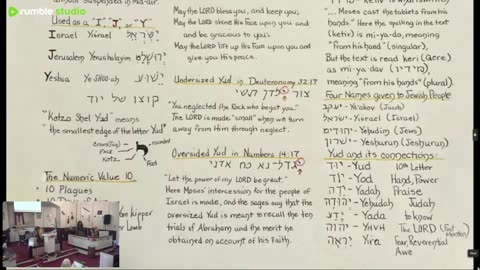 rumble studio
Used as a "I", "J", or "Y"
Israel Yisrael ישראל
Jerusalem Yerushalayim
Yeshua Yeshooah ישוע
קוצו של יוד
"Kotzo Shel Yud" means
"the smallest edge of the letter Yud"
Crown (Tag)
Face
Kotz
Foot
The Numeric Value 10
10 Plagues
May the LORD bless you, and keep you,
May the LORD shine His Face upon you and
and be gracious to you;
May the LORD lift up His Face upon you and
give you His peace.
Undersized Yud in Deuteronomy 32:17
צור ילדך תשי
"You neglected the Rock who begot you."
The LORD is made "small" when we turn
away from Him through neglect.
Oversized Yud in Numbers 14:17
יגדל-נא כח אדני
"Let the power of my LORD be great."
Here Moses' intercession for the people
of Israel is made, and the sages say that the
oversized Yud is meant to recall the ten
trials of Abraham and the merit he
obtained on account of his Faith.
"... Moses cast the tablets from his
hands" Here the spelling in the text
(ketiv) is mi-yado, meaning
"from his hand" (singular),
But the text is read keri (Qere)
as mi-ya-dav (מידיו)
meaning "from his hands" (plural).
Four Names given to Jewish People
יעקב - Ye'akov (Jacob)
ישראל - Yisrael (Israel)
יהודים - Yehudim (Jews)
ישרון - Yeshurun (Jeshurun)
Yud and its connections:
יוד - Yud 10th Letter
יד - Yod Hand, Power
ידה - Yadah Praise
יהודה - Yehudah Judah
ידע - Yada to know
יהוה The LORD
יראה - Yira fear, Reverential
Awe